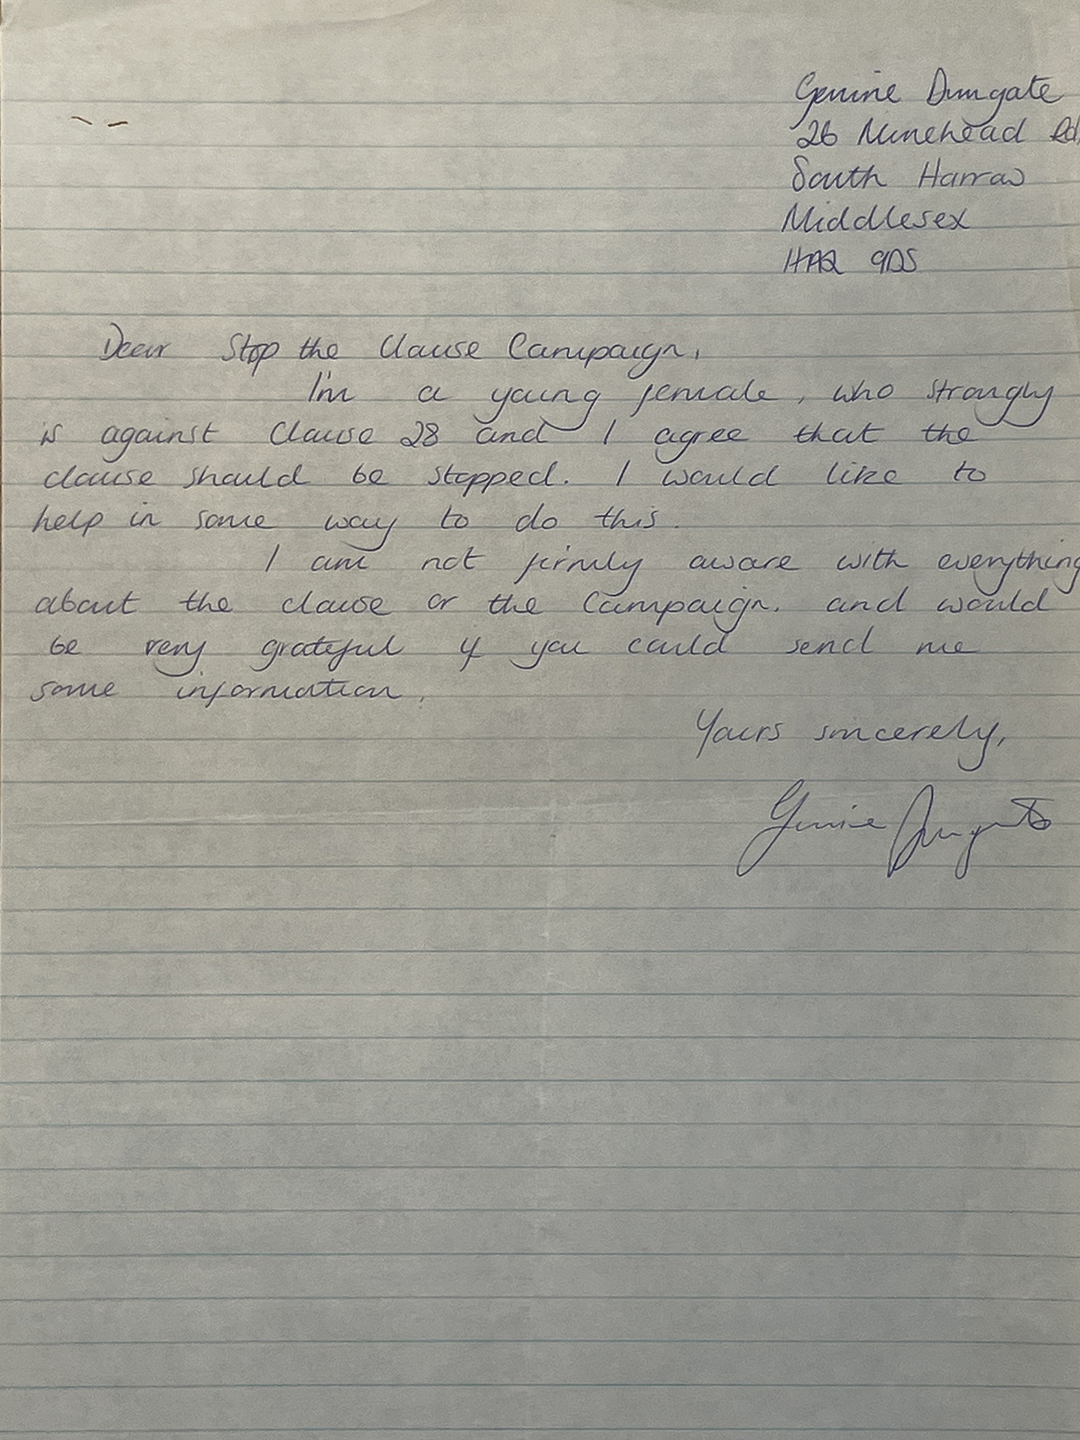 Genine Dungate
26 Minehead Rd,
South Harrow
Middlesex
HA2 9DS
Dear Stop the Clause Campaign,
I'm a young female, who strongly
is against Clause 28 and I agree that the
clause should be stopped. I would like to
help in some way to do this.
I am not firmly aware with everything
about the clause or the Campaign. and would
be very grateful if you could send me
some information.
Yours sincerely,
Genine Dungate